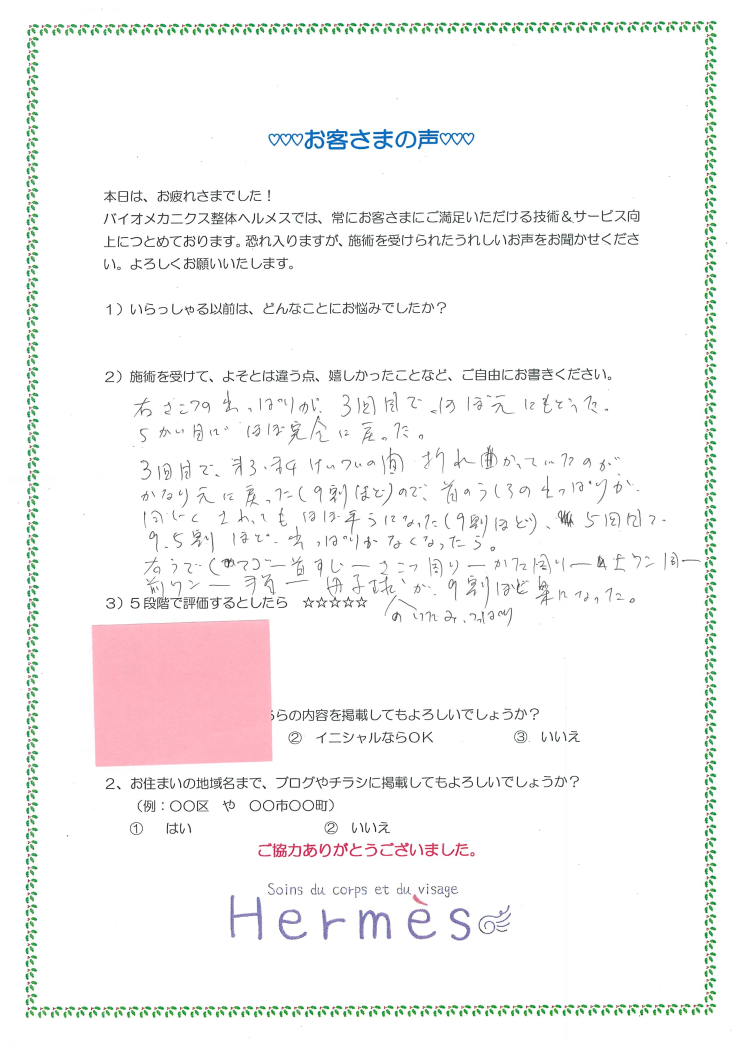 ♡♡♡お客さまの声♡♡♡
本日は、お疲れさまでした!
バイオメカニクス整体ヘルメスでは、常にお客さまにご満足いただける技術&サービス向
上につとめております。恐れ入りますが、施術を受けられたうれしいお声をお聞かせくださ
い。よろしくお願いいたします。
1)いらっしゃる以前は、どんなことにお悩みでしたか?
2)施術を受けて、よそとは違う点、嬉しかったことなど、ご自由にお書きください。
右さこつの出っぱりが、3回目でほぼ元にもどった。
5かい目にほぼ完全に戻った。
3回目で、第3・第4けいついの間 折れ曲がっていたのが
かなり元に戻った(9割ほど)ので、首のうしろの出っぱりが
ほぼ平らになった(9割ほど)、5回目で
9.5割ほど、出っぱりがなくなったら。
右うで 首すじーさこつ周りーかた周りー
前ワンー手首ー母子球が、9割ほど楽になった。
のいたみ、つっぱり
3)5段階で評価するとしたら ☆☆☆☆☆
らの内容を掲載してもよろしいでしょうか?
② イニシャルならOK ③ いいえ
2、お住まいの地域名まで、ブログやチラシに掲載してもよろしいでしょうか?
(例:〇〇区 や 〇〇市〇〇町)
① はい ② いいえ
ご協力ありがとうございました。
Soins du corps et du visage
Hermès